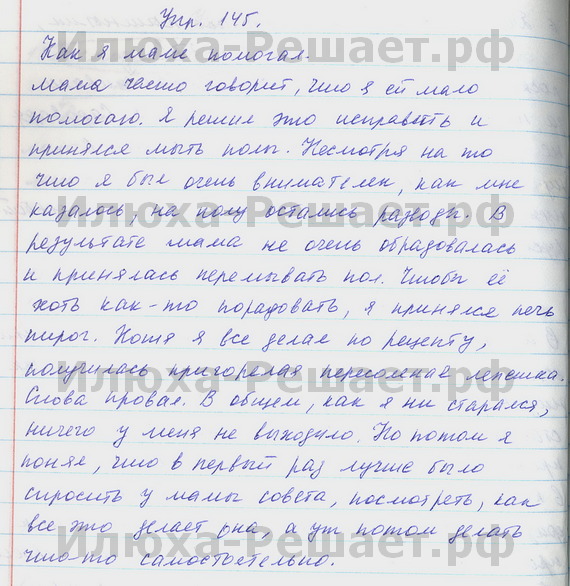 Упр. 145.
Как я маме помогал.
Мама часто говорит, что я ей мало
помогаю. Я решил это исправить и
принялся мыть полы. Несмотря на то
что я был очень внимателен, как мне
казалось, на полу остались разводы. В
результате мама не очень обрадовалась
и принялась перемывать пол. Чтобы её
хоть как-то порадовать, я принялся печь
пирог. Хотя я все делал по рецепту,
получилась пригорелая пересоленая лепешка.
Снова провал. В общем, как я ни старался,
ничего у меня не выходило. Но потом я
понял, что в первый раз лучше было
спросить у мамы совета, посмотреть, как
все это делает она, а уж потом делать
что-то самостоятельно.
Илюха-Решает.рф
Илюха-Решает.рф
Илюха-Решает.рф
Илюха-Решает.рф